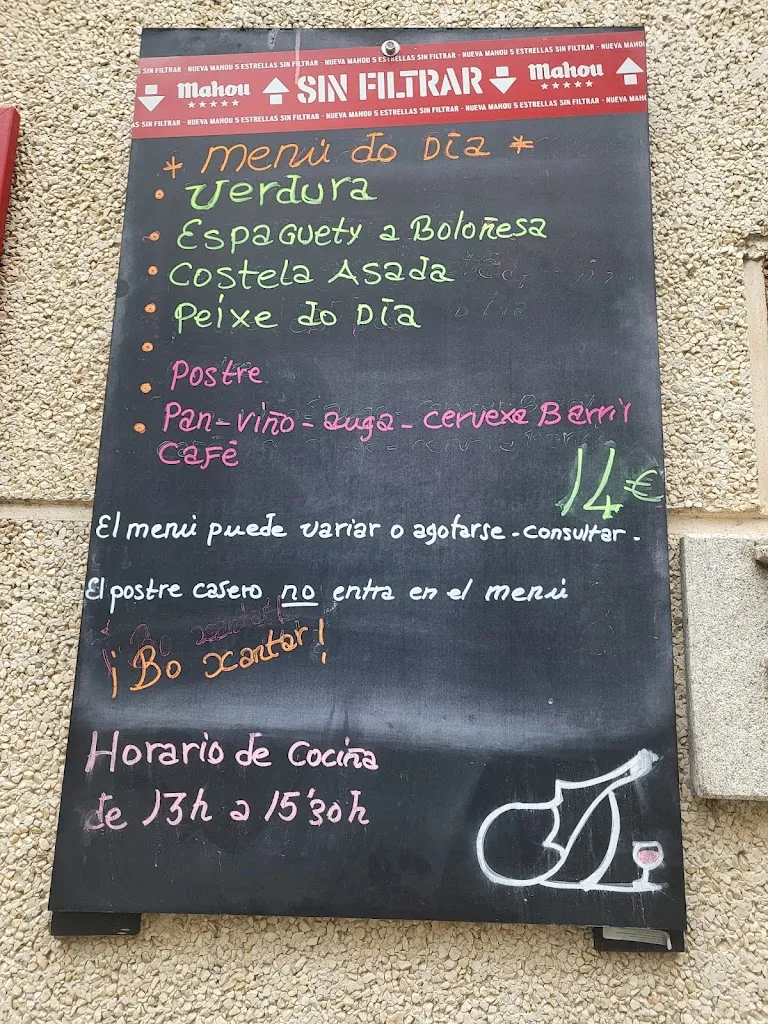 SIN FILTRAR - NUEVA MAHOU 5 ESTRELLAS SIN FILTRAR - NUEVA MAHOU 5 ESTRELLAS SIN FILTRAR - NUEVA MAHO
Mahou SIN FILTRAR Mahou
AS SIN FILTRAR - NUEVA MAHOU 5 ESTRELLAS SIN FILTRAR - NUEVA MAHOU 5 ESTRELLAS SIN FILTRAR - NUEVA MAH
* Menú do Día *
• Verdura
• Espaguety a Boloñesa
• Costela Asada
• Peixe do Día
•
• Postre
• Pan - viño - auga - cervexa Barril
Café
14€
El menú puede variar o agotarse - consultar.
El postre casero no entra en el menú
¡Bo xantar!
Horario de Cociña
de 13h a 15'30h